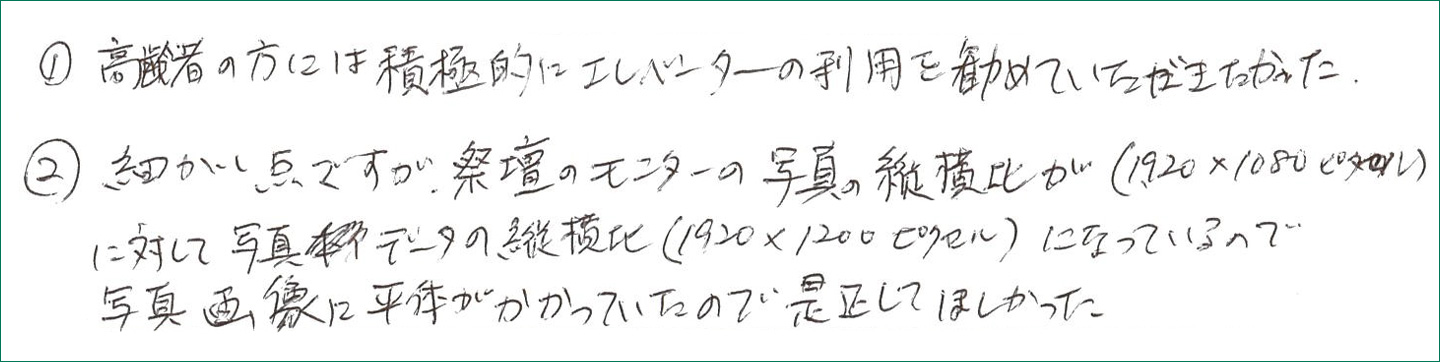 ① 高齢者の方には積極的にエレベーターの利用を勧めていただきたかった.
② 細かい点ですが、祭壇のモニターの写真の縦横比が(1920×1080ピクセル)
に対して写真枠データの縦横比(1920×1200ピクセル)になっているので
写真画像に平体がかかっていたので是正してほしかった